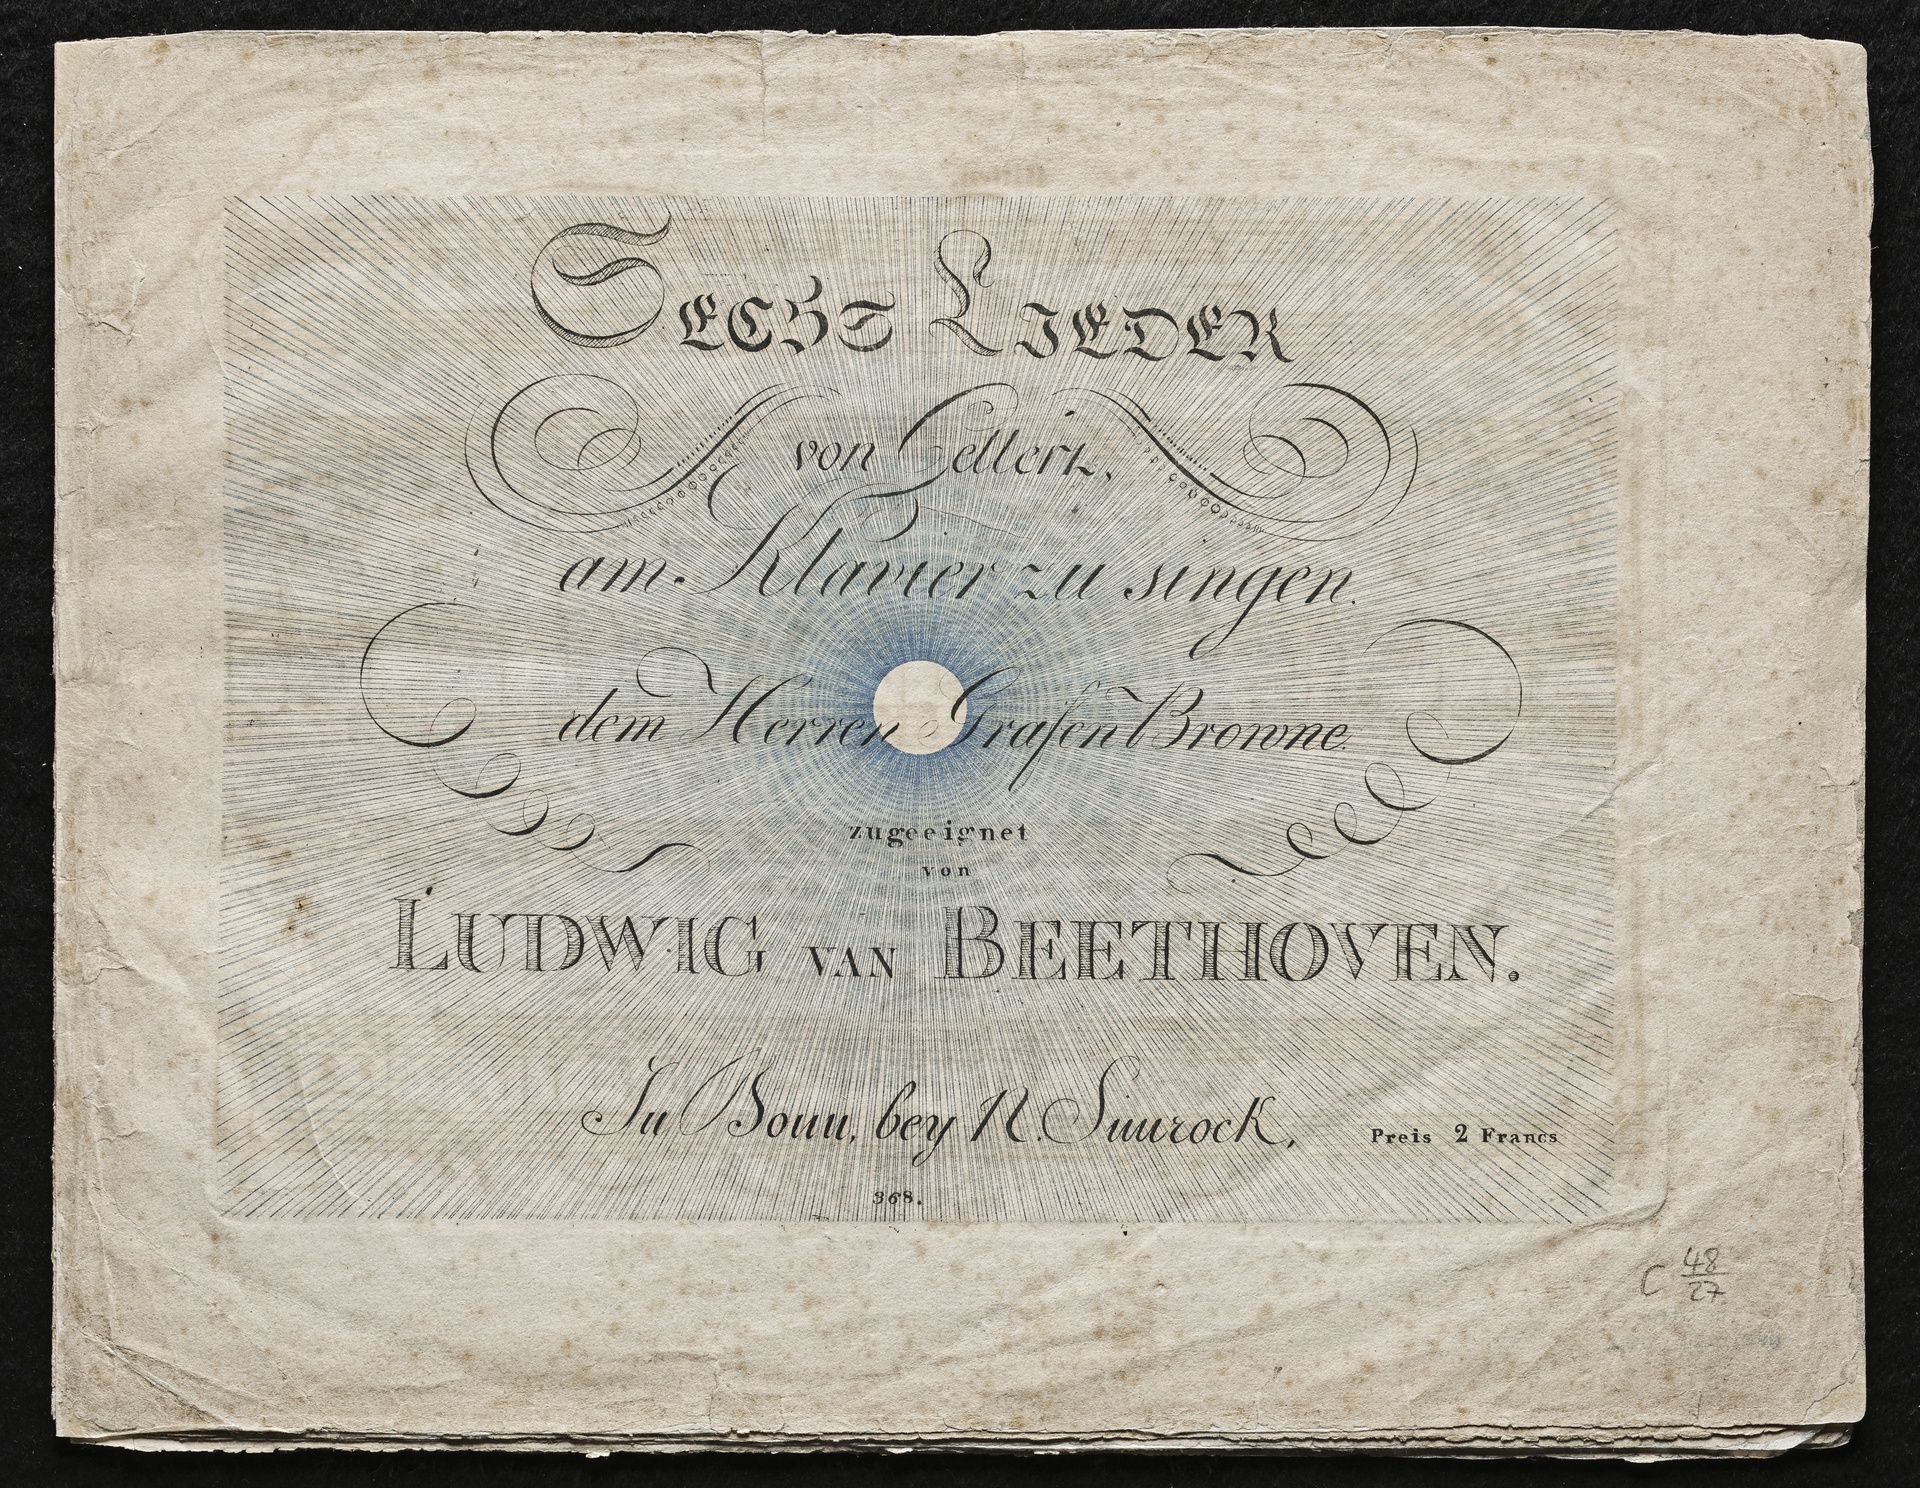 SECHS LIEDER
von Gellert,
am Klavier zu singen.
dem Herren Grafen Browne
zugeeignet
von
LUDWIG VAN BEETHOVEN.
In Bonn, bey N. Simrock,
Preis 2 Francs
368.
C 48/27